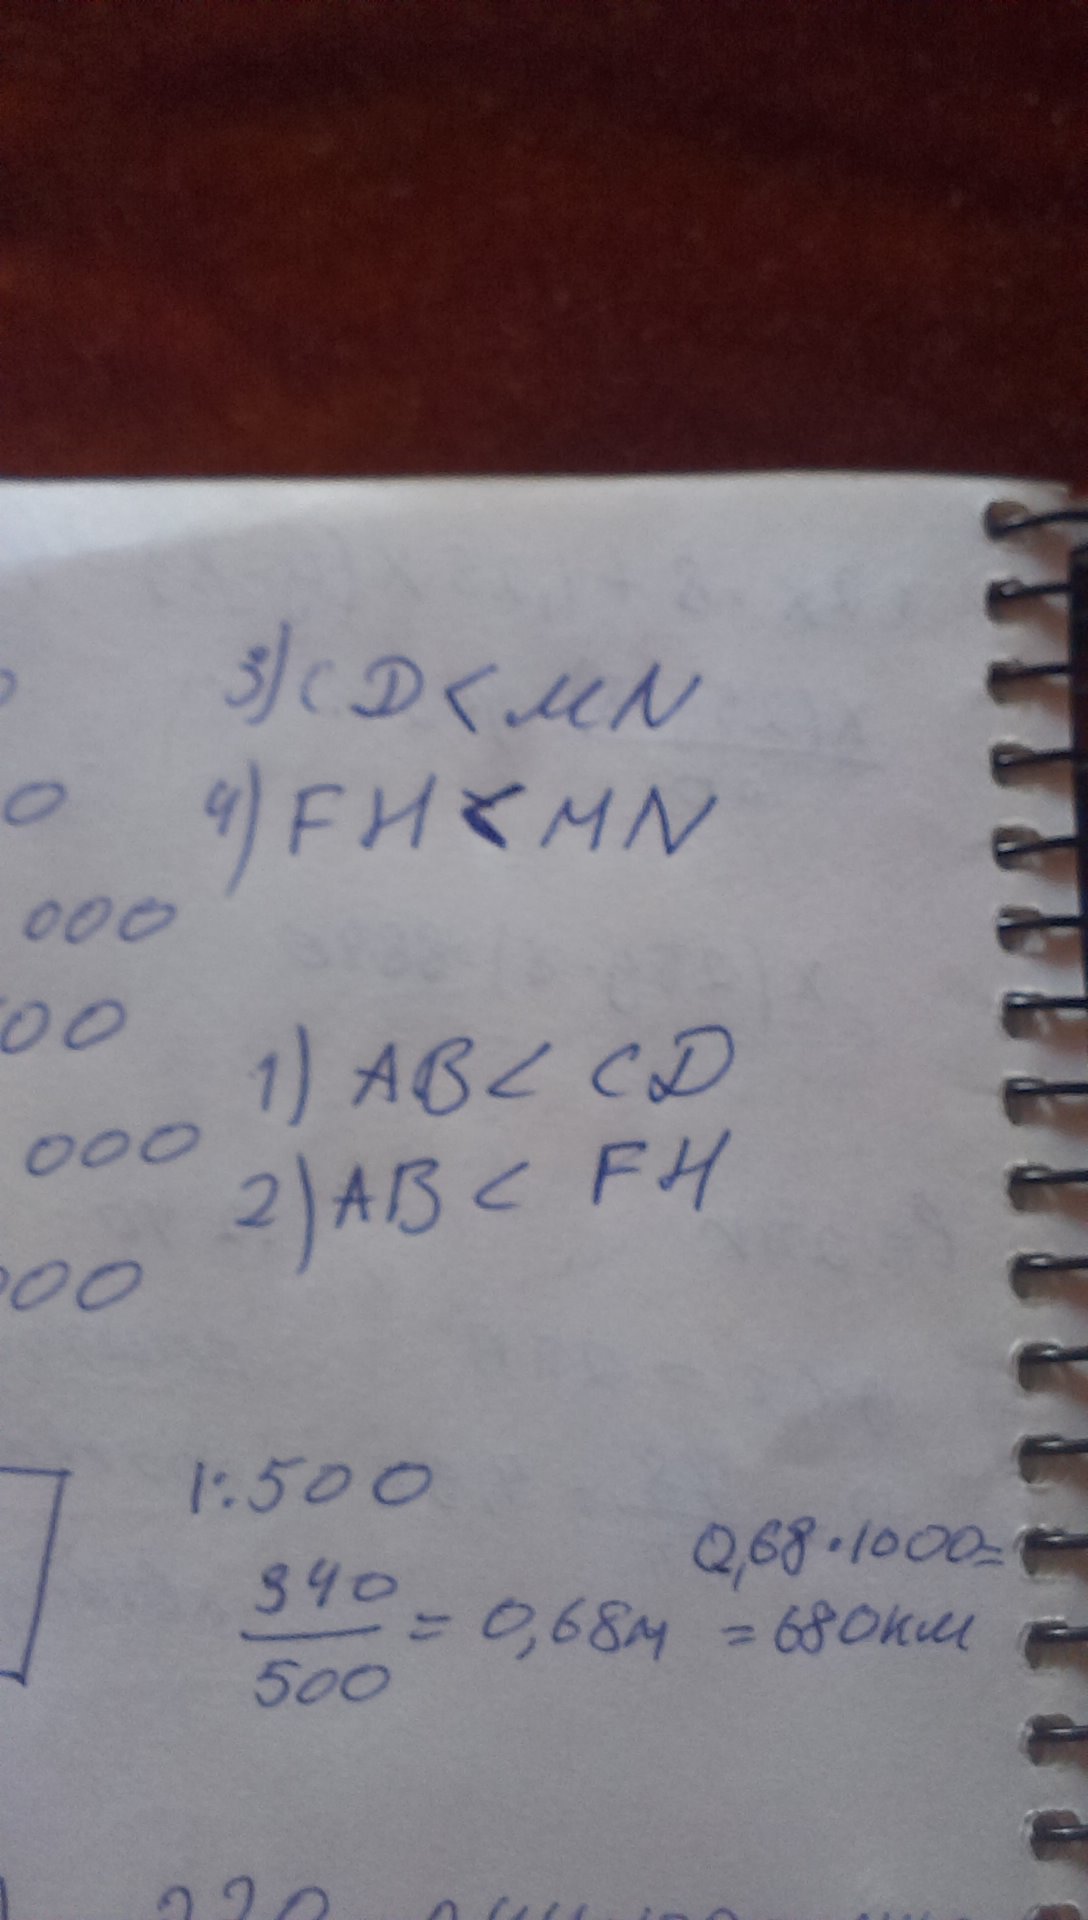 3) CD < MN
0
4) FH < MN
000
00
1) AB < CD
000
2) AB < FH
000
1:500
340/500 = 0,68м
0,68·1000=
=680км